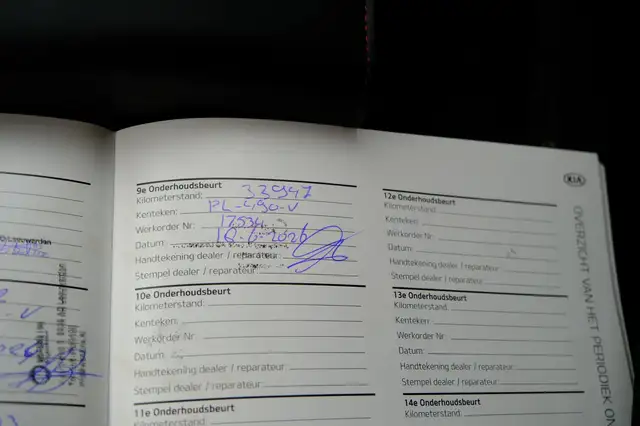 9e Onderhoudsbeurt
Kilometerstand: 33947
Kenteken: PL-490-V
Werkorder Nr: 17534
Datum: 10-6-2026
Handtekening dealer / reparateur:
Stempel dealer / reparateur
10e Onderhoudsbeurt
Kilometerstand:
Kenteken:
Werkorder Nr
Datum
Handtekening dealer / reparateur
Stempel dealer / reparateur
11e Onderhoudsbeurt
12e Onderhoudsbeurt
Kilometerstand
Kenteken
Werkorder Nr.
Datum
Handtekening dealer / reparateur
Stempel dealer / reparateur
13e Onderhoudsbeurt
Kilometerstand
Kenteken
Werkorder Nr
Datum:
Handtekening dealer / reparateur
Stempel dealer / reparateur
14e Onderhoudsbeurt
Kilometerstand:
KIA
OVERZICHT VAN HET PERIODIEK ON